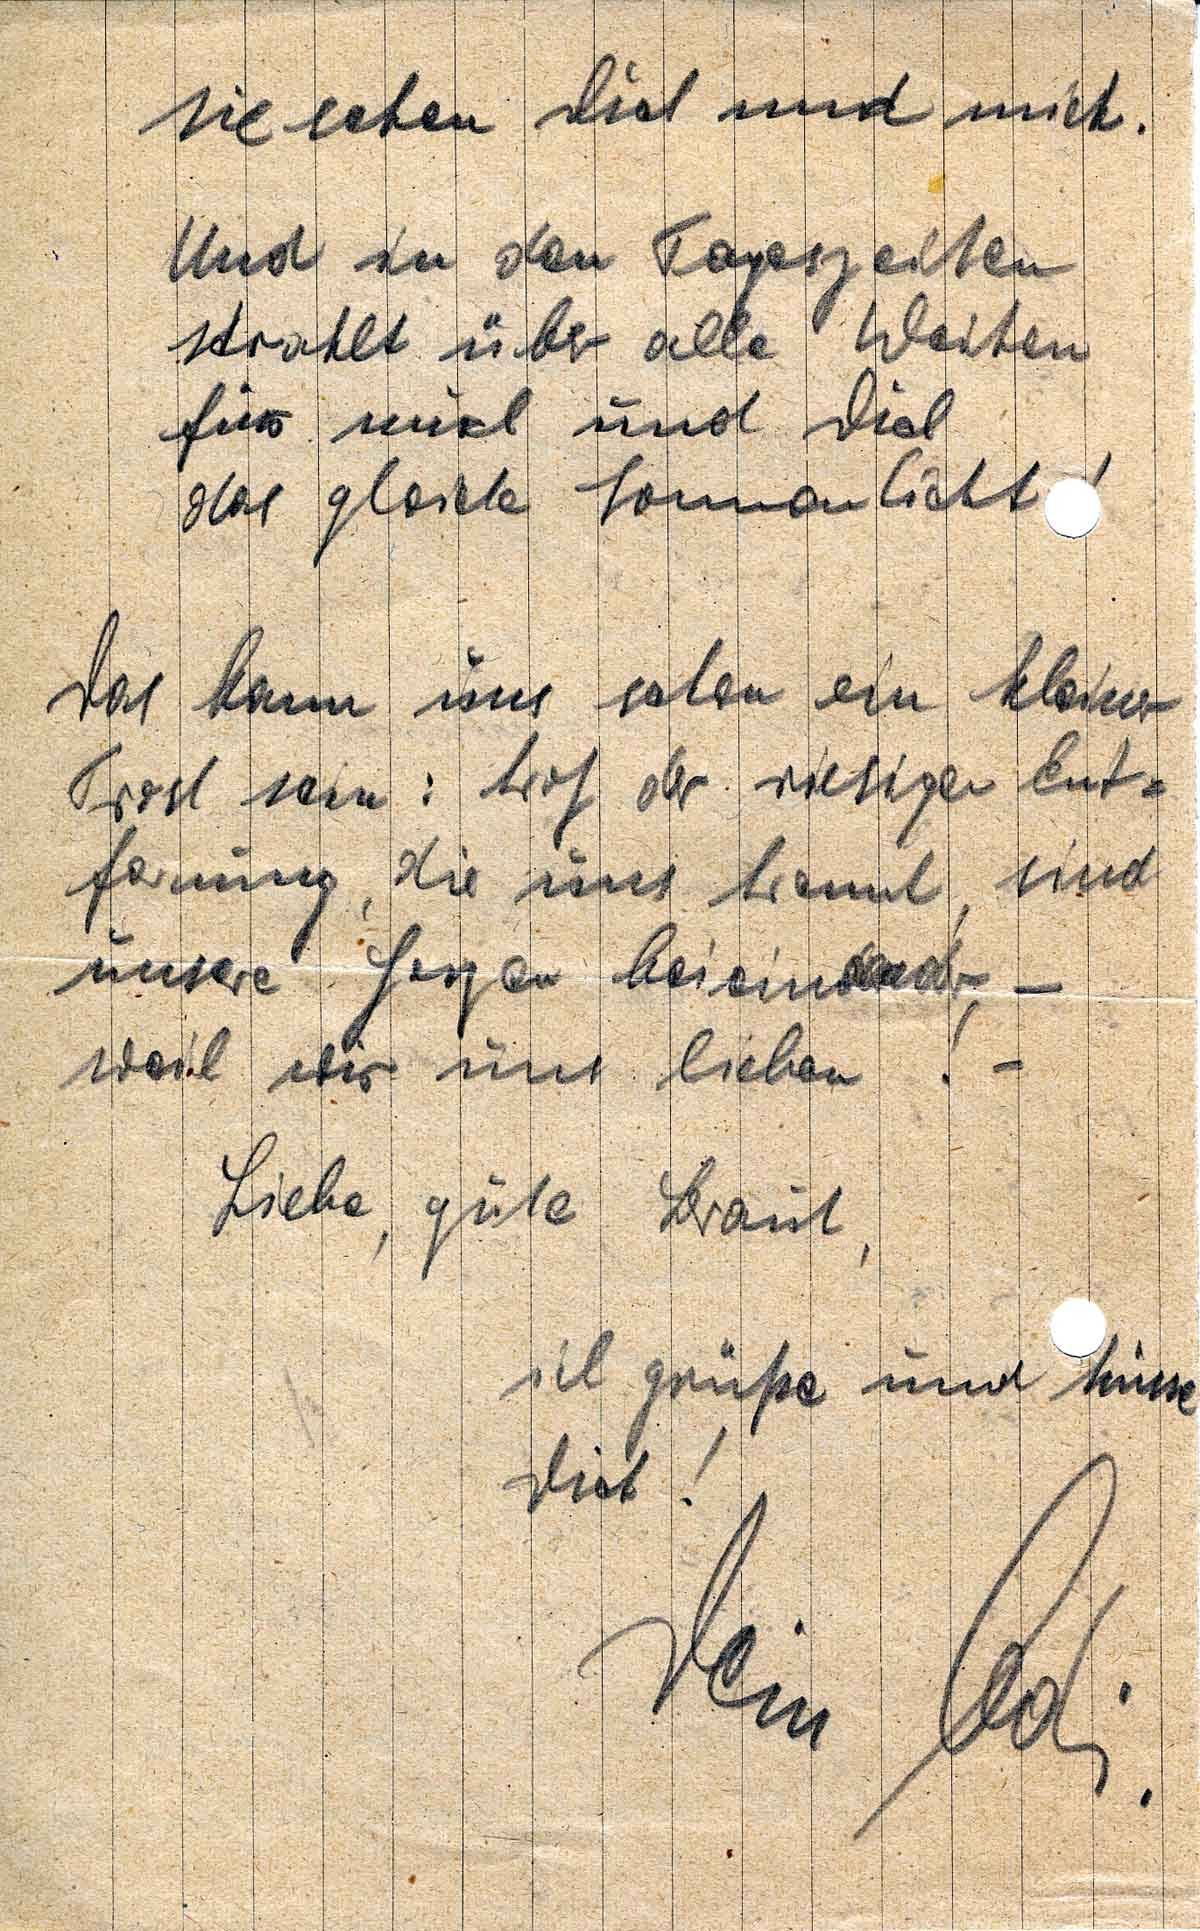 sie sehen Dich und mich.
Und in den Tageszeiten
strahlt über alle Weiten
für mich und Dich
das gleiche Sonnenlicht!
Das kann uns schon ein kleiner
Trost sein: trotz der riesigen Ent=
fernung, die uns trennt, sind
unsere Herzen beieinander, –
weil wir uns lieben! –
Liebe, gute Braut,
ich grüße und küsse
Dich!
Dein